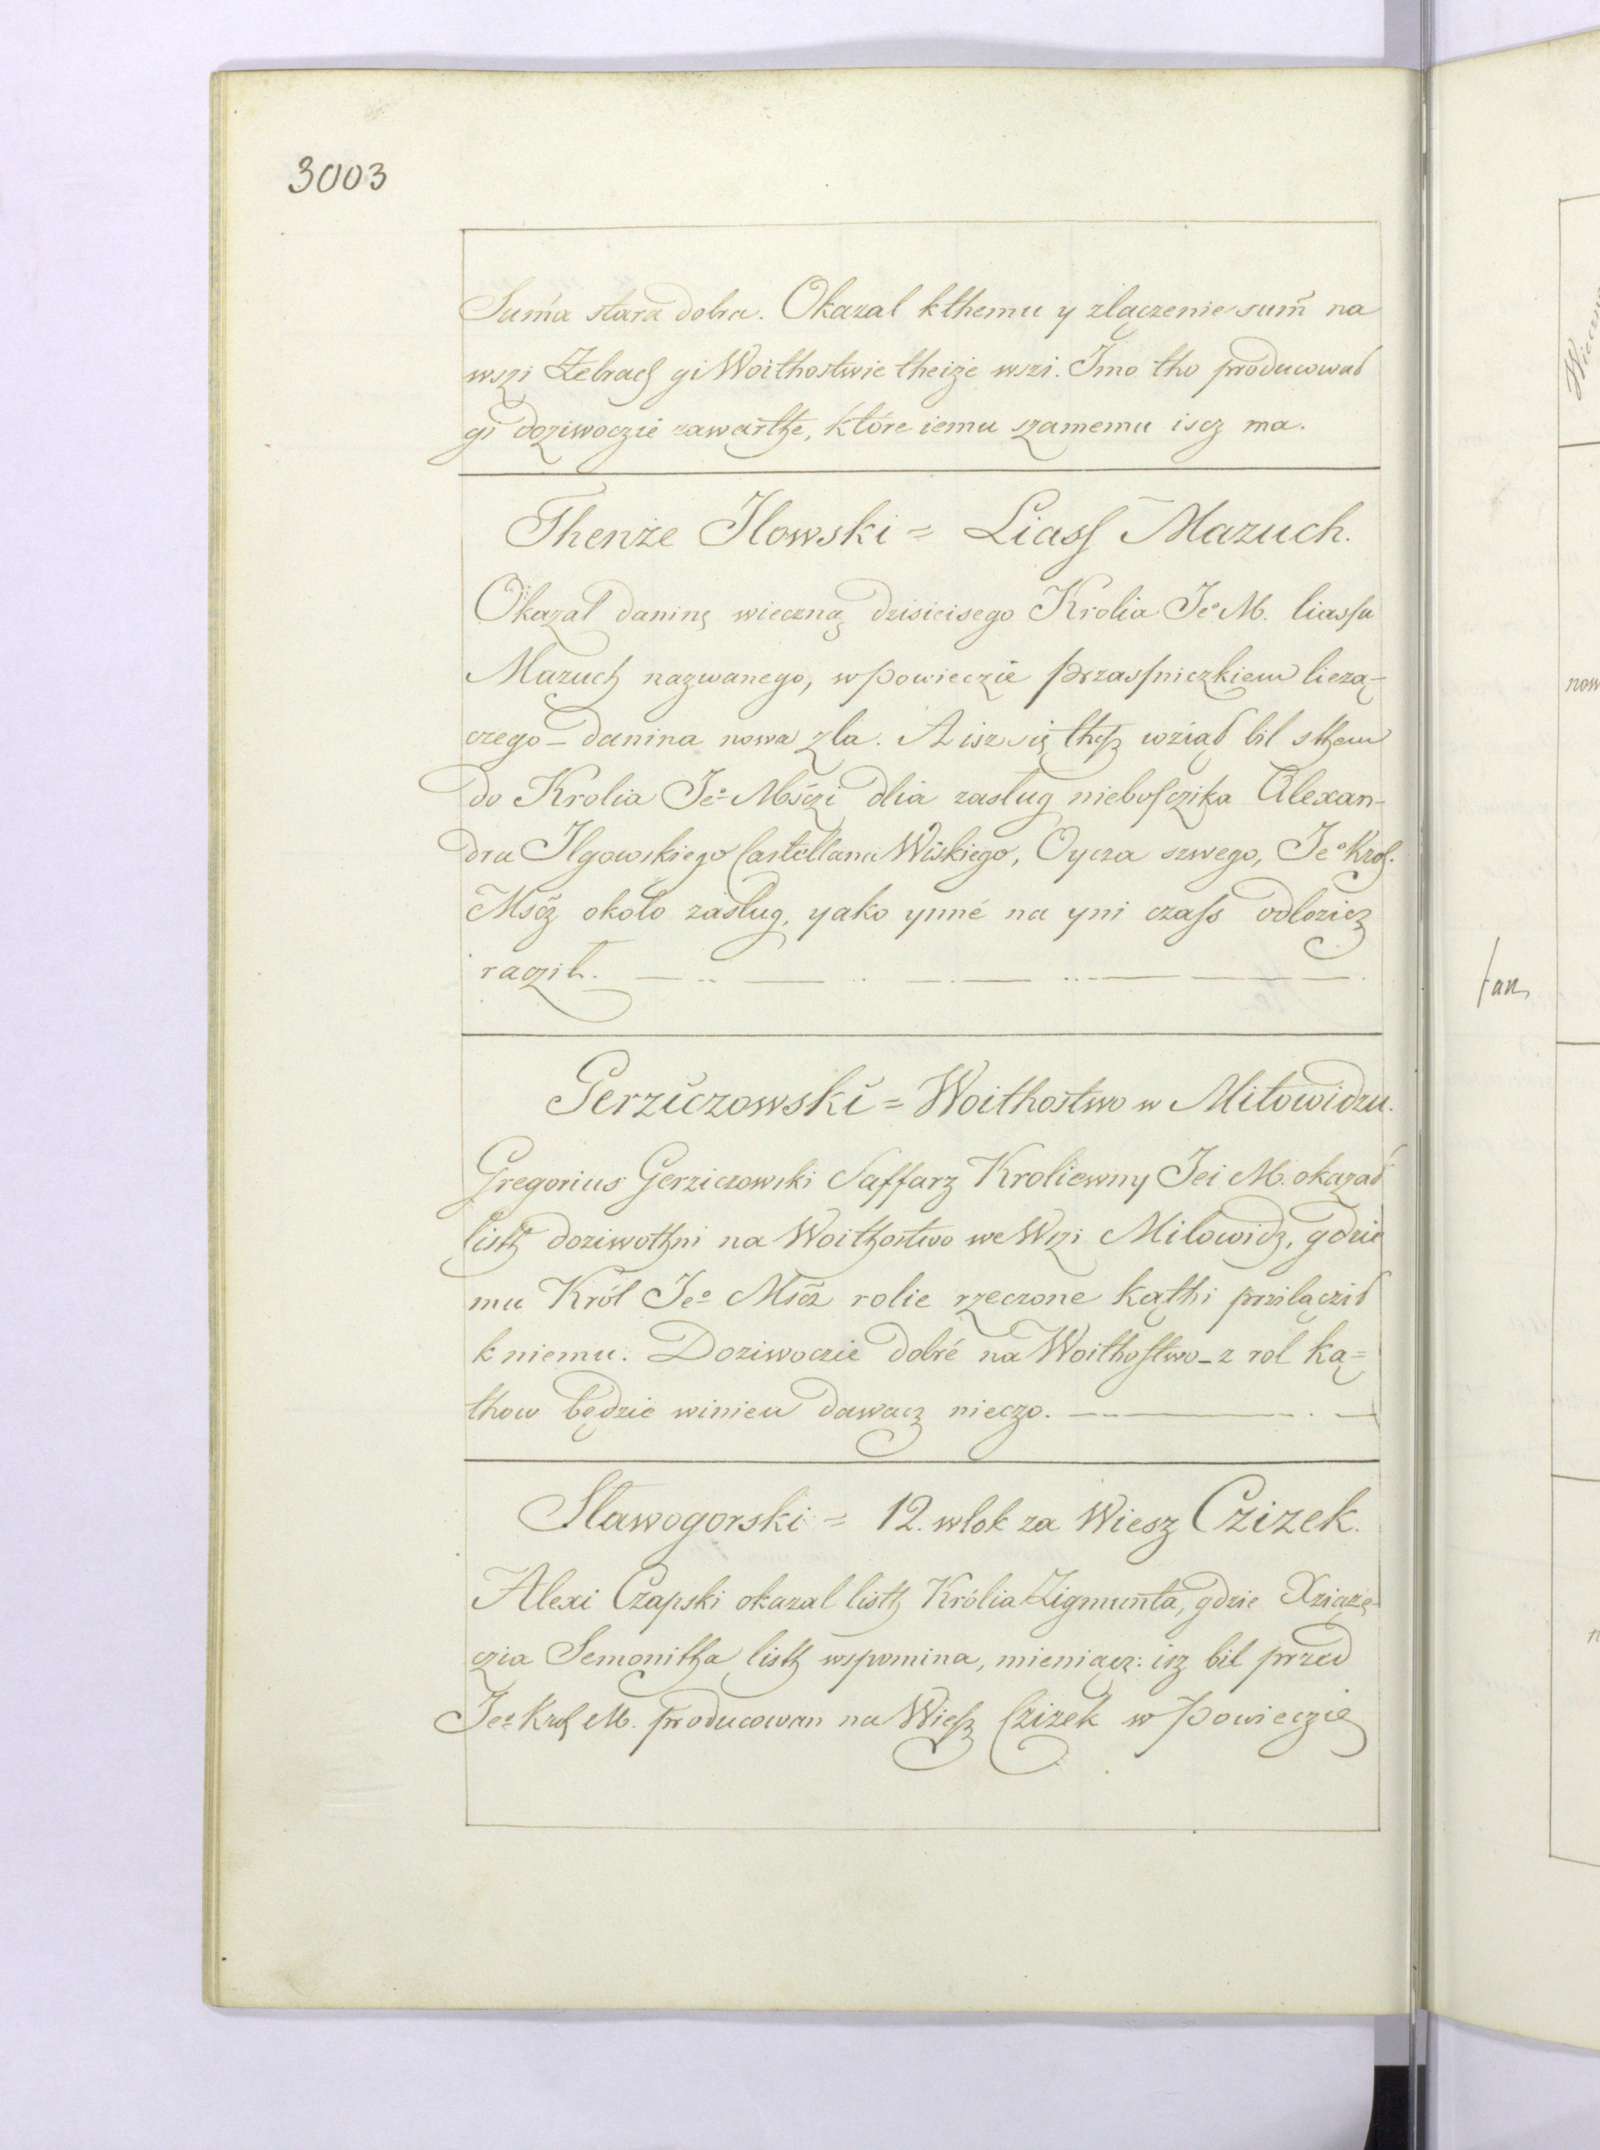 3003
Suma stara dobra. Okazal kthemu y zlączenie sum̃ na
wszi Zebrach gi Woithostwie theize wszi. Imo tho producował
gi doziwoczie zawarthe, które iemu szamemu iscz ma.
Thenże Ilowski = Liass Mazuch.
Okazał daninę wieczną dzisieisego Krolia Jeº M. liassu
Mazuch nazwanego, w Powieczie przasniczkiem lieżą-
czego – danina nowa zla. A isz się thesz wziął bil sthem
do Krolia Jeº Mśczi dlia zasług nieboszczika Alexan-
dra Ilgowskiego Castellana Wiskiego, Oycza szwego, Jeº Krol.
Mścz około zasług, yako ynné na yni czass odlozicz
racził.
Gerziczowski = Woithostwo w Miłowidzu.
Gregorius Gerziczowski Saffarz Kroliewny Jei M. okazał
listh doziwothni na Woithostwo we Wszi Milowidz, gdzie
mu Król Jeº Mścz rolie rzeczone kąthi prziłącził
k niemu. Doziwoczie dobré na Woithostwo – z rol ką=
thow będzie winien dawacz nieczo.
Sławogorski = 12. włok za Wiesz Czizek.
Alexi Czapski okazal listh Królia Zigmunta, gdzie Xziążę-
czia Semonitha listh wspomina, mieniącz: isz bil przed
Jeº Krol M. producowan na Wiesz Czizek w Powieczie